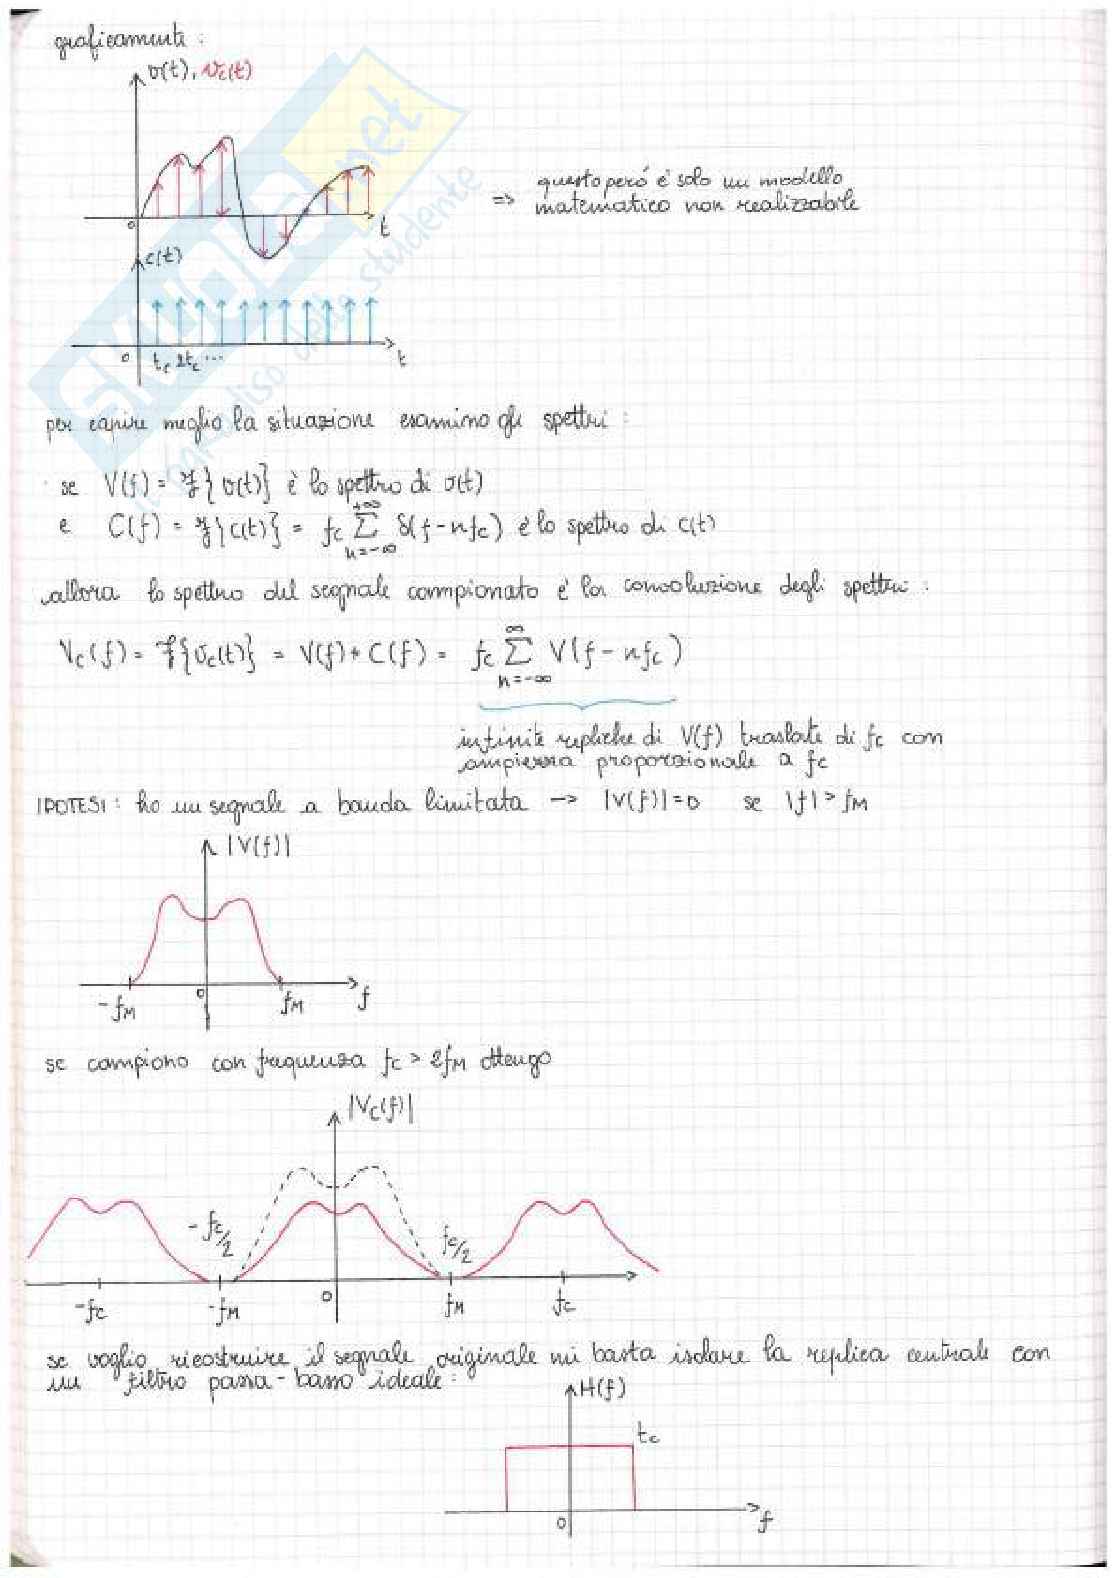 graficamente :
v(t), vc(t)
=> questo però è solo un modello
matematico non realizzabile
0
t
c(t)
0 tc 2tc ... t
per capire meglio la situazione esamino gli spettri :
se V(f) = ℱ{v(t)} è lo spettro di v(t)
e C(f) = ℱ{c(t)} = fc ∑_{n=-∞}^{+∞} δ(f-nfc) è lo spettro di c(t)
allora lo spettro del segnale campionato è la convoluzione degli spettri :
Vc(f) = ℱ{vc(t)} = V(f) * C(f) = fc ∑_{n=-∞}^{∞} V(f-nfc)
infinite repliche di V(f) traslate di fc con
ampiezza proporzionale a fc
IPOTESI : ho un segnale a banda limitata -> |V(f)|=0 se |f| > fM
|V(f)|
-fM 0 fM f
se campiono con frequenza fc > 2fM ottengo
|Vc(f)|
-fc/2 fc/2
-fc -fM 0 fM fc
se voglio ricostruire il segnale originale mi basta isolare la replica centrale con
un filtro passa-basso ideale :
H(f)
tc
0 f
skuola.net
il paradiso dello studente